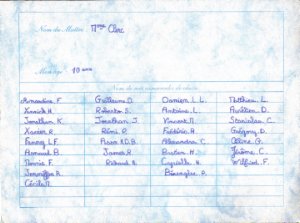 Nom du Maître : Mme Clerc
Mon âge : 10 ans
Nom de mes camarades de classe
Amandine F. Guillaume D. Damien L. L. Matthieu L.
Yannick H. S. Antoine L. Aurélien D.
Jonathan K. Jonathan J. Vincent M. Stanislas C.
Xavier R. Rémi P. Frédéric A. Grégory D.
Fanny L.F. Alexandra C. Céline G.
Arnaud B. James R. Bastien H. Jérôme C.
F. Richard A. Cyrielle H. Wilfried F.
Jennifer R. Bérengère P.
Cécile M.